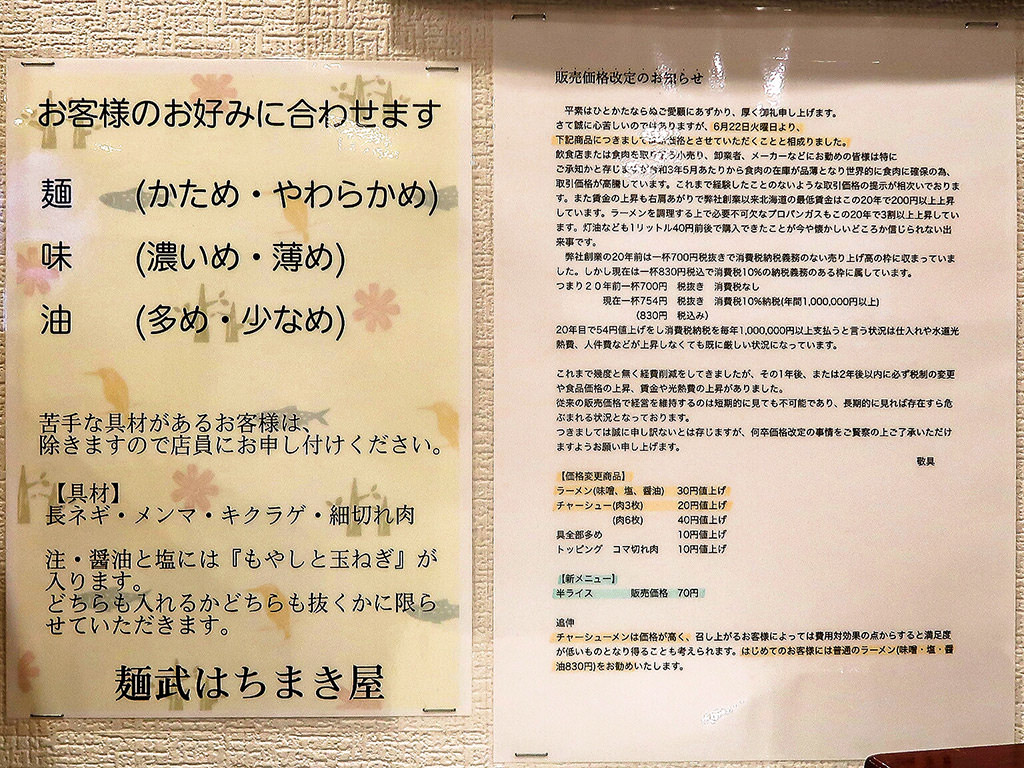 お客様のお好みに合わせます
麺 (かため・やわらかめ)
味 (濃いめ・薄め)
油 (多め・少なめ)
苦手な具材があるお客様は、
除きますので店員にお申し付けください。
【具材】
長ネギ・メンマ・キクラゲ・細切れ肉
注・醤油と塩には『もやしと玉ねぎ』が
入ります。
どちらも入れるかどちらも抜くかに限ら
せていただきます。
麺武はちまき屋
販売価格改定のお知らせ
平素はひとかたならぬご愛顧にあずかり、厚く御礼申し上げます。
さて誠に心苦しいのではありますが、6月22日火曜日より、
下記商品につきまして 価格とさせていただくことと相成りました。
飲食店または食肉を取り う小売り、卸業者、メーカーなどにお勤めの皆様は特に
ご承知かと存じ 令和3年5月あたりから食肉の在庫が品薄となり世界的に食肉に確保の為、
取引価格が高騰しています。これまで経験したことのないような取引価格の提示が相次いでおりま
す。また賃金の上昇も右肩あがりで弊社創業以来北海道の最低賃金はこの20年で200円以上上昇
しています。ラーメンを調理する上で必要不可欠なプロパンガスもこの20年で3割以上上昇してい
ます。灯油なども1リットル40円前後で購入できたことが今や懐かしいどころか信じられない出
来事です。
弊社創業の20年前は一杯700円税抜きで消費税納税義務のない売り上げ高の枠に収まっていま
した。しかし現在は一杯830円税込で消費税10%の納税義務のある枠に属しています。
つまり20年前一杯700円 税抜き 消費税なし
現在一杯754円 税抜き 消費税10%納税(年間1,000,000円以上)
(830円 税込み)
20年目で54円値上げをし消費税納税を毎年1,000,000円以上支払うと言う状況は仕入れや水道光
熱費、人件費などが上昇しなくても既に厳しい状況になっています。
これまで幾度と無く経費削減をしてきましたが、その1年後、または2年後以内に必ず税制の変更
や食品価格の上昇、賃金や光熱費の上昇がありました。
従来の販売価格で経営を維持するのは短期的に見ても不可能であり、長期的に見れば存在すら危
ぶまれる状況となっております。
つきましては誠に申し訳ないとは存じますが、何卒価格改定の事情をご賢察の上ご了承いただけ
ますようお願い申し上げます。
敬具
【価格変更商品】
ラーメン(味噌、塩、醤油) 30円値上げ
チャーシュー(肉3枚) 20円値上げ
(肉6枚) 40円値上げ
具全部多め 10円値上げ
トッピング コマ切れ肉 10円値上げ
【新メニュー】
半ライス 販売価格 70円
追伸
チャーシューメンは価格が高く、召し上がるお客様によっては費用対効果の点からすると満足度
が低いものとなり得ることも考えられます。はじめてのお客様には普通のラーメン(味噌・塩・醤
油830円)をお勧めいたします。